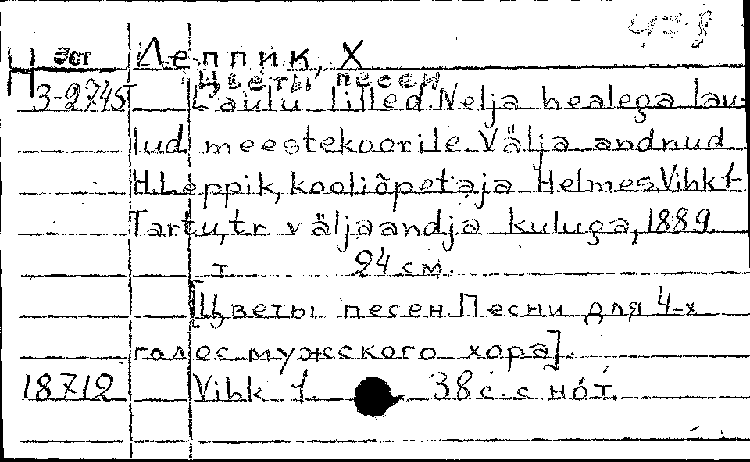 438
Н Эст Леппик, Х
Цветы песен
3-2745 Laulu lilled. Nelja healega lau-
lud meestekoorile. Välja andnud
H. Leppik, kooliõpetaja Helmes. Vihk 1-
Tartu, tr. väljaandja kuluga, 1889.
т. 24 см.
[Цветы песен. Песни для 4-х
голос. мужского хора].
18712 Vihk 1. 38 с. с нот.